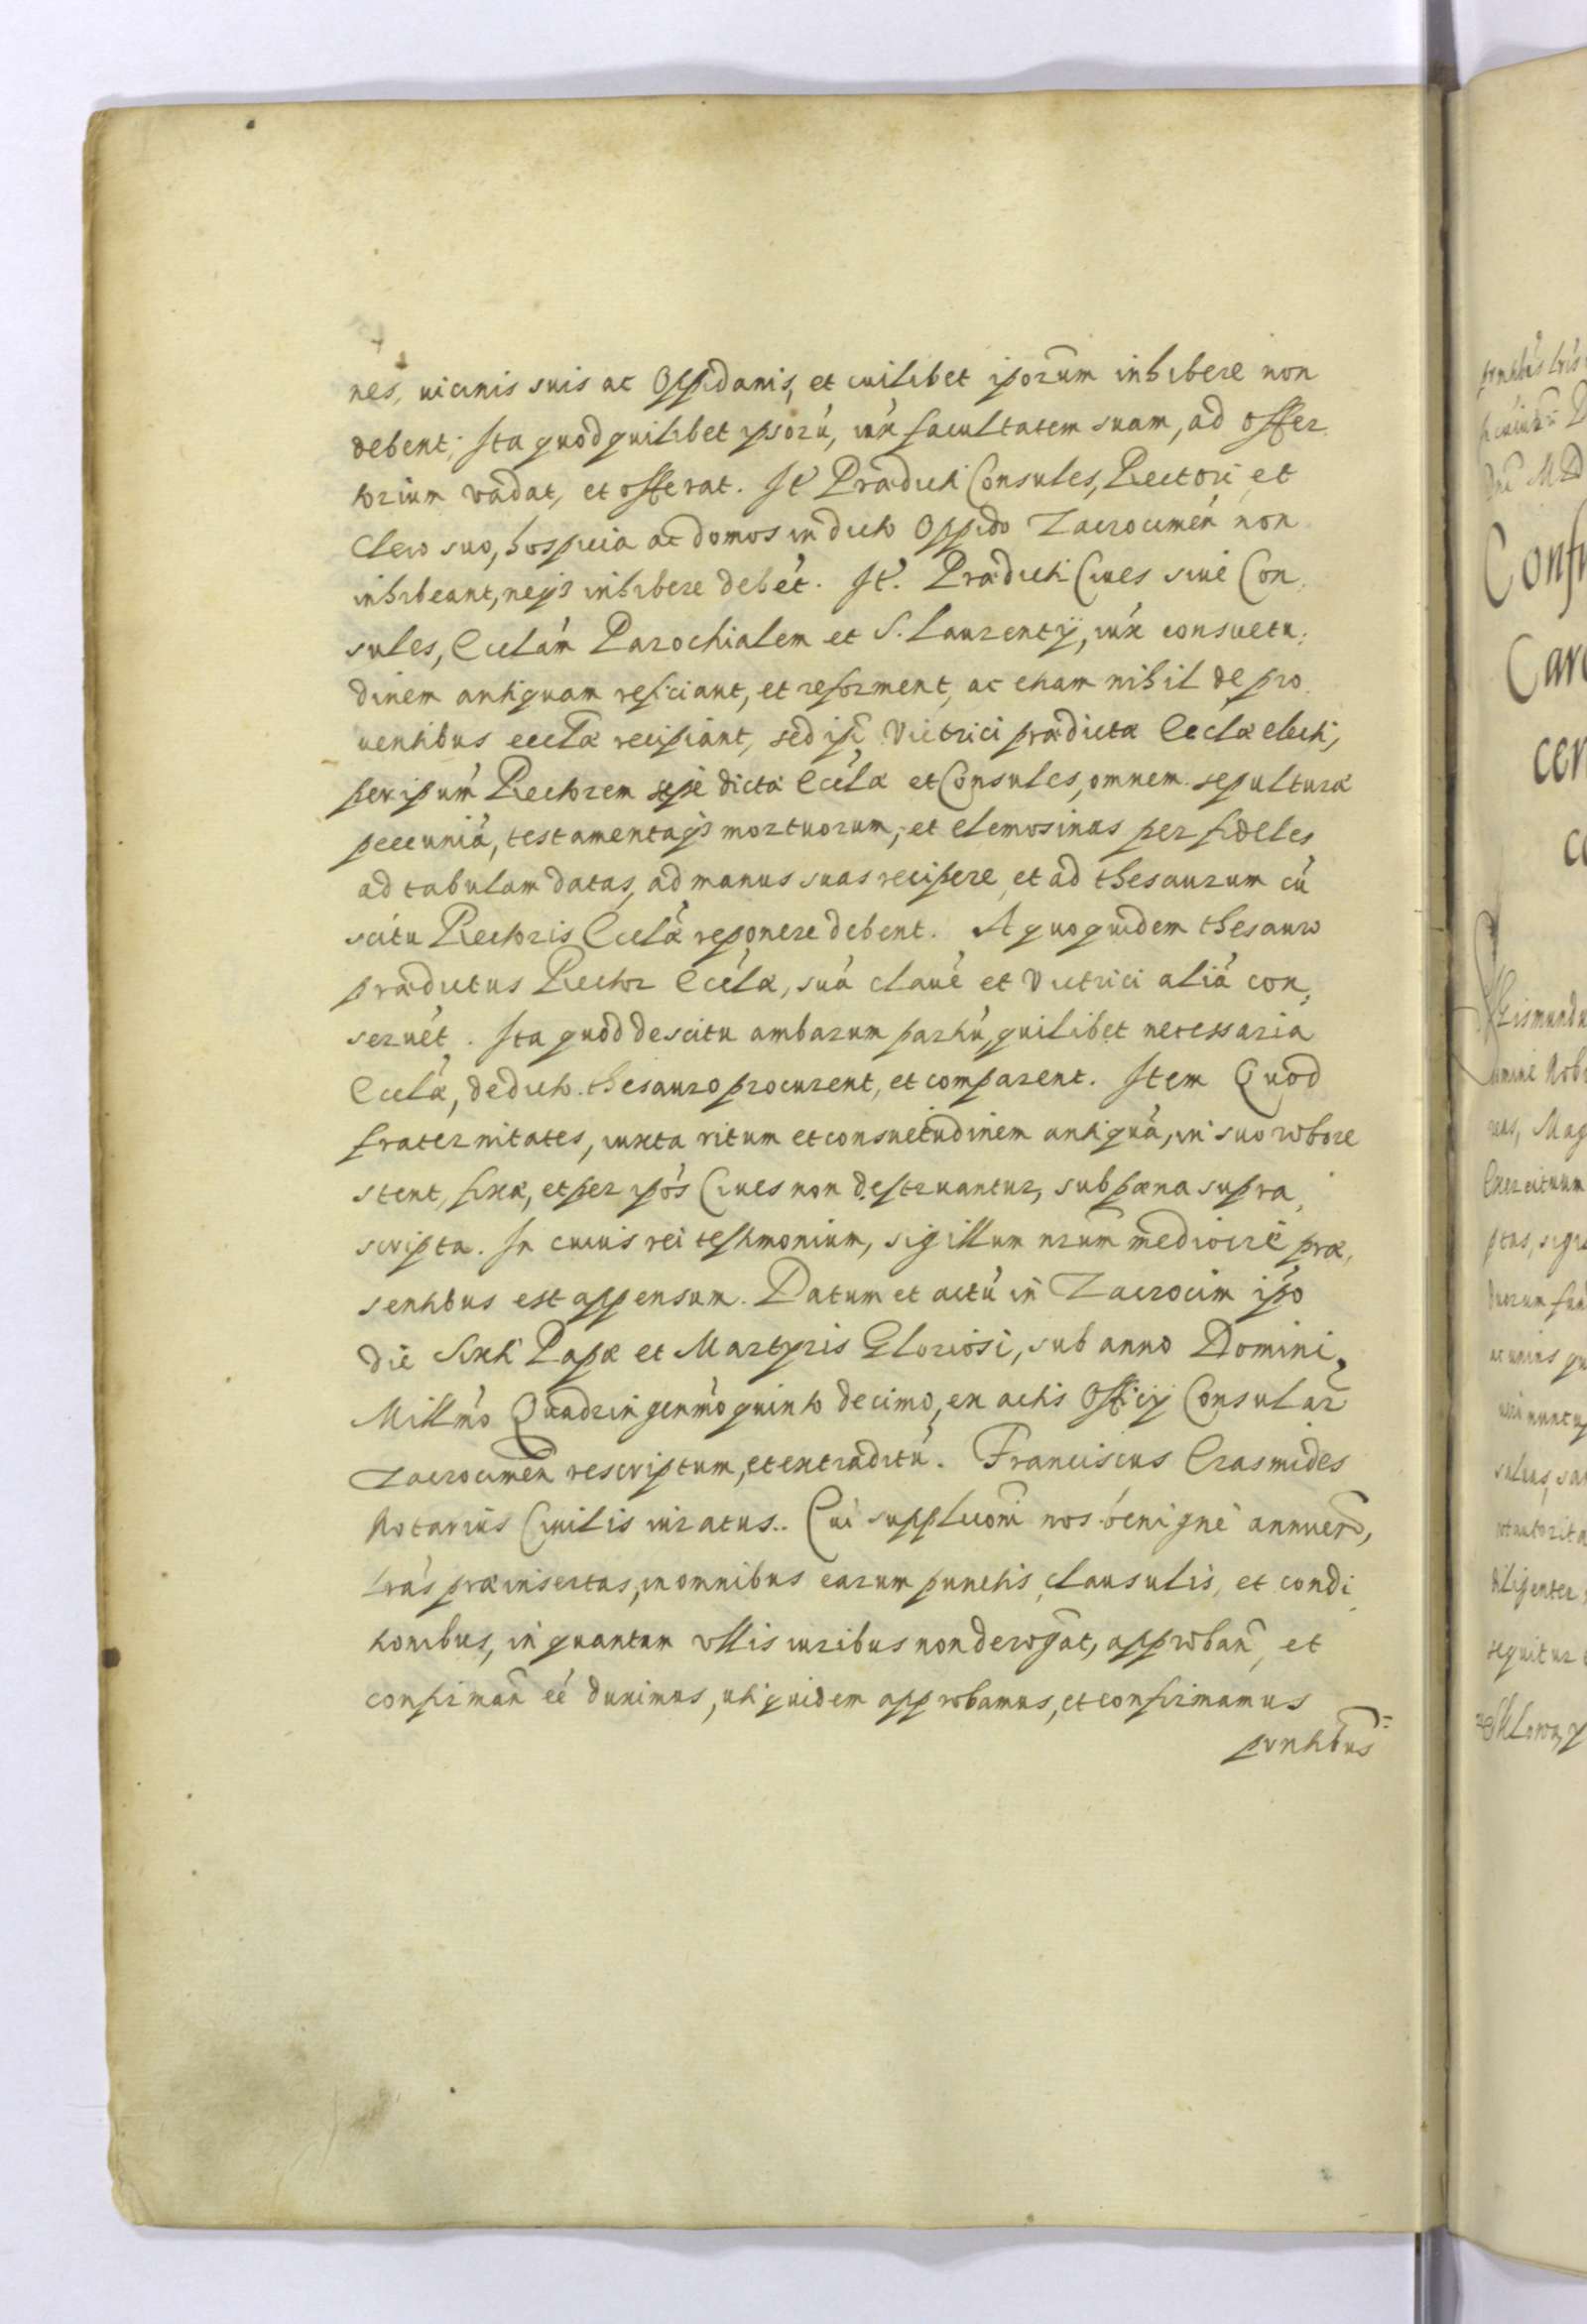 nes, uicinis suis ac Oppidanis, et cuilibet ipsorum inhibere non
debent; Ita quod quilibet ipsorú, iux̃ facultatem suam, ad offer
torium vadat, et offerat. It̃ Prædicti Consules, Rectori et
Clero suo, hospicia ac domos in dicto Oppido Zacrocimeñ non
inhibeant, neq₃ inhibere debét. It̃. Prædicti Ciues siue Con,
sules, Ecclám Parochialem et S. Laurentÿ, iux̃ consuetu,
dinem antiquam reficiant, et reforment, ac etiam nihil de pro,
uentibus eccl̃æ recipiant, sed ip̃i Victrici prædictæ Eccl̃æ electi,
per ipsum̃ Rectorem sæpè dictæ Eccl̃æ et Consules, omnem sepulturæ
pecuniá, testamentaq₃ mortuorum, et elemosinas per fideles
ad tabulam datas, ad manus suas recipere, et ad thesaurum cú
scitu Rectoris Eccl̃æ reponere debent. A quo quidem thesauro
prædictus Rector Eccl̃æ, suá clauè et Victrici aliá con,
seruét. Ita quod de scitu ambarum partiú, quilibet necessaria
Eccl̃æ, de dicto thesauro procurent, et comparent. Item Quod
fraternitates, iuxta ritum et consuetudinem antiquá, in suo robore
stent, fixæ, et per ipós Ciues non destruantur, sub pœna supra,
scripta. In cuius rei testimonium, sigillum nr̃um mediocrè præ,
sentibus est appensum. Datum et actú in Zacrocim ipó
die Sixti Papæ et Martyris Gloriosi, sub anno Domini,
Millm̃o Quadringenm̃o quinto decimo, ex actis Officÿ Consular̃
Zacrocimeñ rescriptum, et extraditú. Franciscus Erasmides
Notarius Ciuilis iuratus. Cui supplicõni nos benignè annueñ,
lrás præinsertas, in omnibus earum punctis, clausulis, et condi,
tionibus, in quantum vllis iuribus non derogãt, approbañ, et
confirmañ eé duximus, uti quidem approbamus, et confirmamus
pn̄tibus